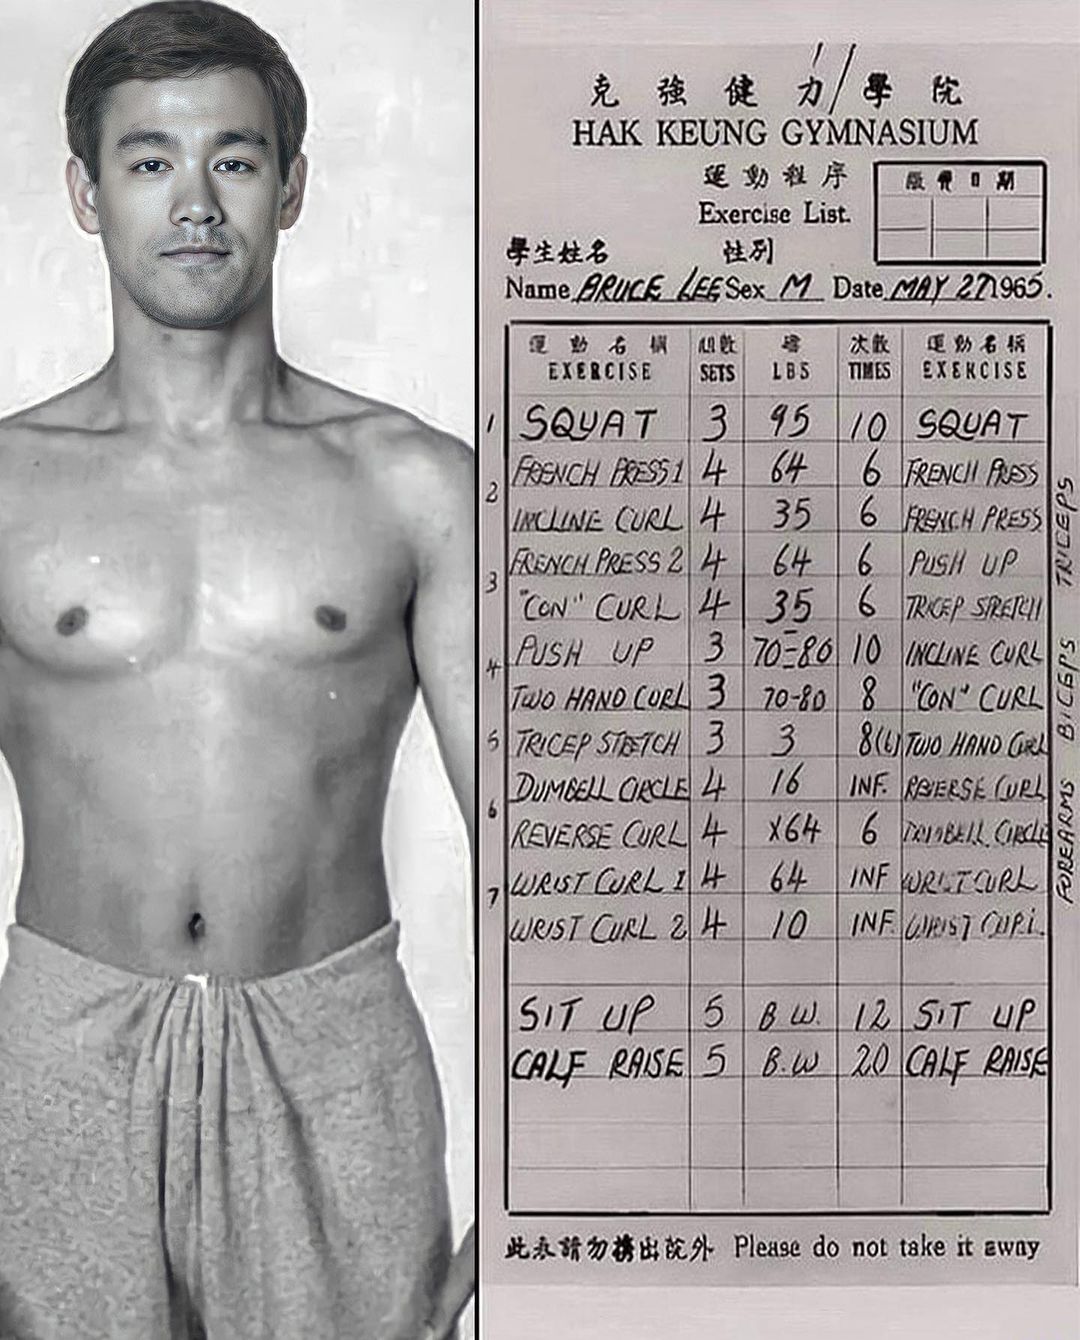 克強健力學院
HAK KEUNG GYMNASIUM
運動程序
Exercise List.
學生姓名 性別
Name BRUCE LEE Sex M Date MAY 27 1965.
運動名稱 組數 磅 次數 運動名稱
EXERCISE SETS LBS TIMES EXERCISE
1 SQUAT 3 95 10 SQUAT
2 FRENCH PRESS 1 4 64 6 FRENCH PRESS
INCLINE CURL 4 35 6 FRENCH PRESS
3 FRENCH PRESS 2 4 64 6 PUSH UP
"CON" CURL 4 35 6 TRICEP STRETCH
4 PUSH UP 3 70-80 10 INCLINE CURL
TWO HAND CURL 3 70-80 8 "CON" CURL
5 TRICEP STRETCH 3 3 8(6) TWO HAND CURL
6 DUMBELL CIRCLE 4 16 INF. REVERSE CURL
REVERSE CURL 4 X64 6 DUMBELL CIRCLE
7 WRIST CURL 1 4 64 INF WRIST CURL
WRIST CURL 2 4 10 INF. WRIST CURL
SIT UP 5 B.W. 12 SIT UP
CALF RAISE 5 B.W 20 CALF RAISE
TRICEPS
BICEPS
FOREARMS
此表請勿携出院外 Please do not take it away